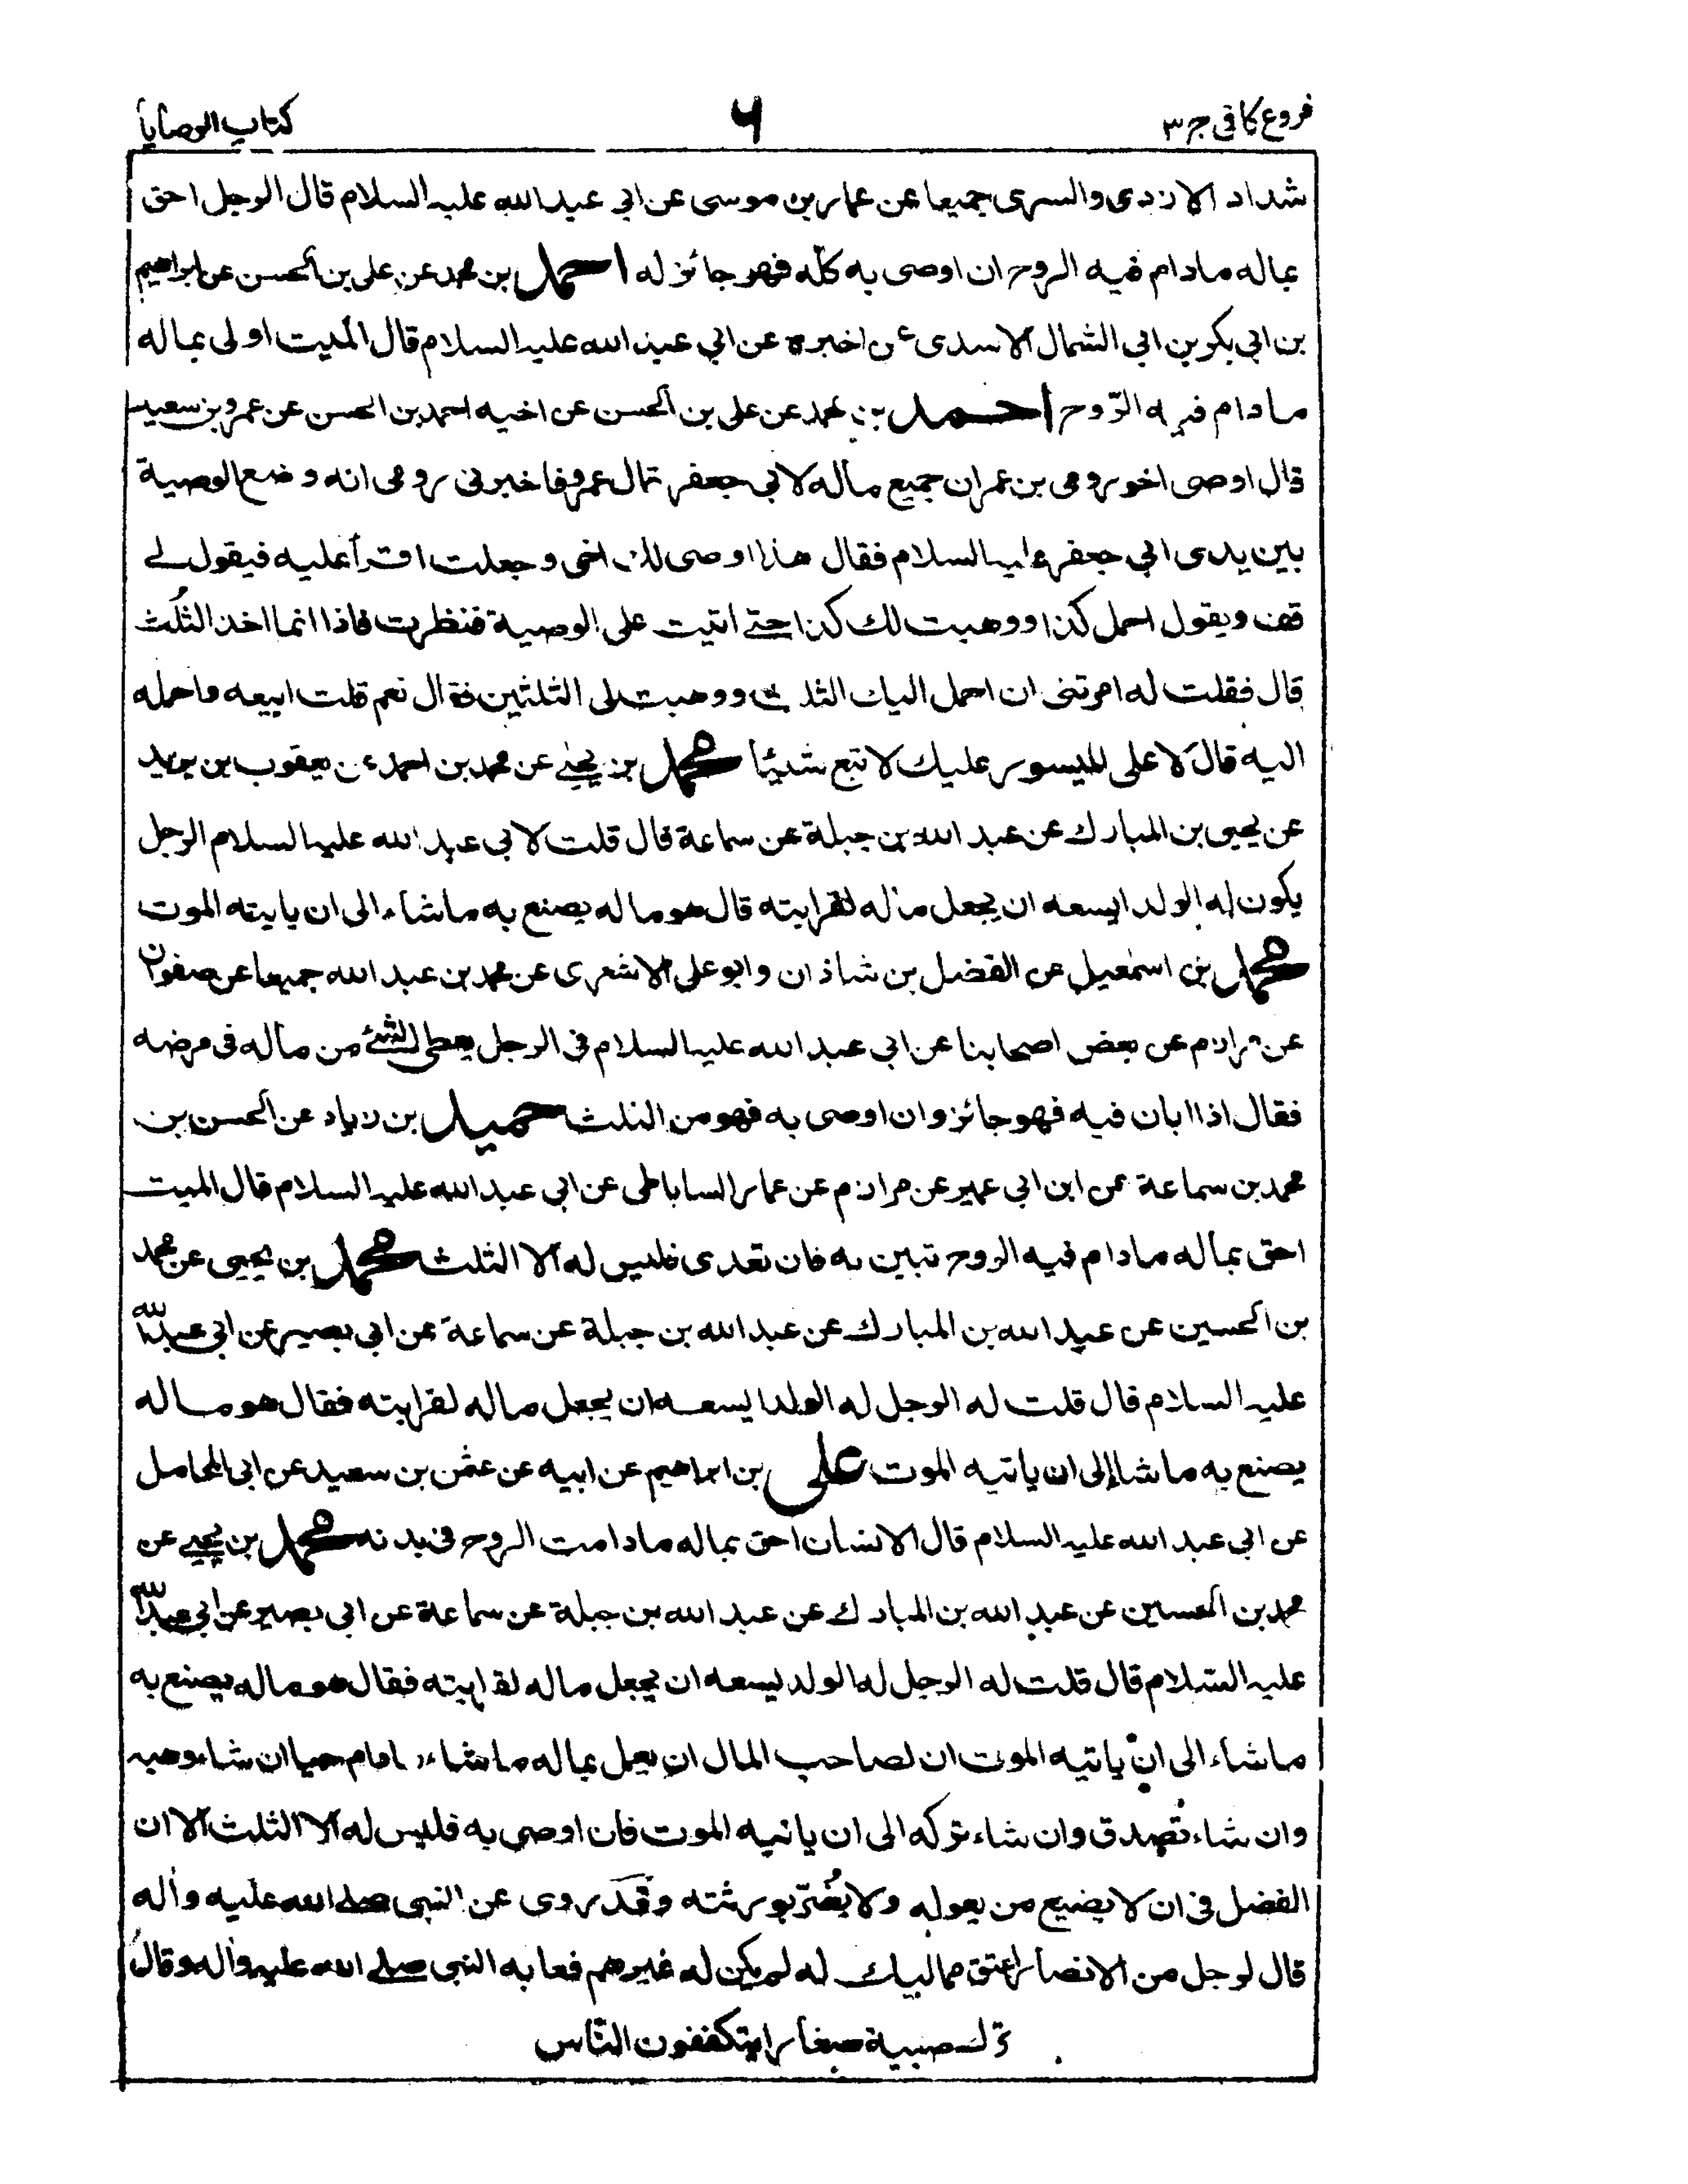 فروع كافى ج ٣
٦
كتاب الوصايا
شداد الازدى والسرى جميعا عن عمار بن موسى عن ابى عبد الله عليه السلام قال الرجل احق
بماله مادام فيه الروح ان اوصى به كلّه فهو جائز له احمد بن محمد عن على بن الحسن عن ابراهيم
بن ابى بكر بن ابى الشمال الاسدى عن اخبره عن ابى عبد الله عليه السلام قال الميت اولى بماله
مادام فيه الرّوح احمد بن محمد عن على بن الحسن عن اخيه احمد بن الحسن عن عمرو بن سعيد
قال اوصى اخو رومى بن عمران جميع ماله لابى جعفر قال عمرو فاخبرنى رومى انه وضع الوصية
بين يدى ابى جعفر عليه السلام فقال هذا اوصى لك اخى وجعلت اقرأ عليه فيقول لے
قف ويقول احمل كذا ووهبت لك كذا حتے اتيت على الوصية فنظرت فاذا انما اخذ الثلث
قال فقلت له امرتنى ان احمل اليك الثلث ووهبت لى الثلثين فقال نعم قلت ابيعه واحمله
اليه قال لا على الميسور عليك لا تبع شيئا محمد بن يحيے عن محمد بن احمد عن يعقوب بن يزيد
عن يحيى بن المبارك عن عبد الله بن جبلة عن سماعة قال قلت لابى عبد الله عليه السلام الرجل
يكون له الولد ايسعه ان يجعل ماله لقرابته قال هو ماله يصنع به ماشاء الى ان ياتيه الموت
محمد بن اسمعيل عن الفضل بن شاذان وابو على الاشعرى عن محمد بن عبد الله جميعا عن صفوان
عن مرازم عن بعض اصحابنا عن ابى عبد الله عليه السلام فى الرجل يعطى الشئ من ماله فى مرضه
فقال اذا ابان فيه فهو جائز وان اوصى به فهو من الثلث حميد بن زياد عن الحسن بن
محمد بن سماعة عن ابن ابى عمير عن مرازم عن عمار الساباطى عن ابى عبد الله عليه السلام قال الميت
احق بماله مادام فيه الروح تبين به فان تعدى فليس له الا الثلث محمد بن يحيى عن محمد
بن الحسين عن عبد الله بن المبارك عن عبد الله بن جبلة عن سماعة عن ابى بصير عن ابى عبد الله
عليه السلام قال قلت له الرجل له الولد ايسعه ان يجعل ماله لقرابته فقال هو ماله
يصنع به ماشاء الى ان ياتيه الموت على بن ابراهيم عن ابيه عن عثمن بن سعيد عن ابى المحامل
عن ابى عبد الله عليه السلام قال الانسان احق بماله مادامت الروح فى بدنه محمد بن يحيے عن
محمد بن الحسين عن عبد الله بن المبارك عن عبد الله بن جبلة عن سماعة عن ابى بصير عن ابى عبد الله
عليه السّلام قال قلت له الرجل له الولد يسعه ان يجعل ماله لقرابته فقال هو ماله يصنع به
ماشاء الى ان ياتيه الموت ان لصاحب المال ان يعمل بماله ماشاء حيا ان شاء وهبه
وان شاء تصدق وان شاء تركه الى ان ياتيه الموت فان اوصى به فليس له الا الثلث الا ان
الفضل فى ان لا يضيع من يعوله ولا يضرّ بورثته وقد روى عن النبى صلے الله عليه واله
قال لرجل من الانصار اعتق مماليك له لم يكن له غيرهم فعابه النبى صلے الله عليه واله وقال
ترك صبية صغارا يتكففون النّاس